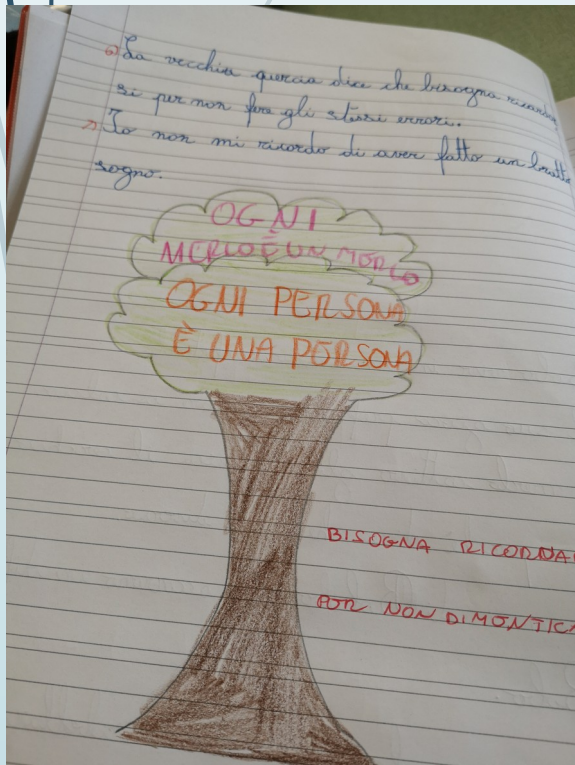 6) La vecchia quercia dice che bisogna ricordar
si per non fare gli stessi errori.
7) Io non mi ricordo di aver fatto un brutto
sogno.
OGNI
MERLO È UN MERLO
OGNI PERSONA
È UNA PERSONA
BISOGNA RICORDA
PER NON DIMENTICA